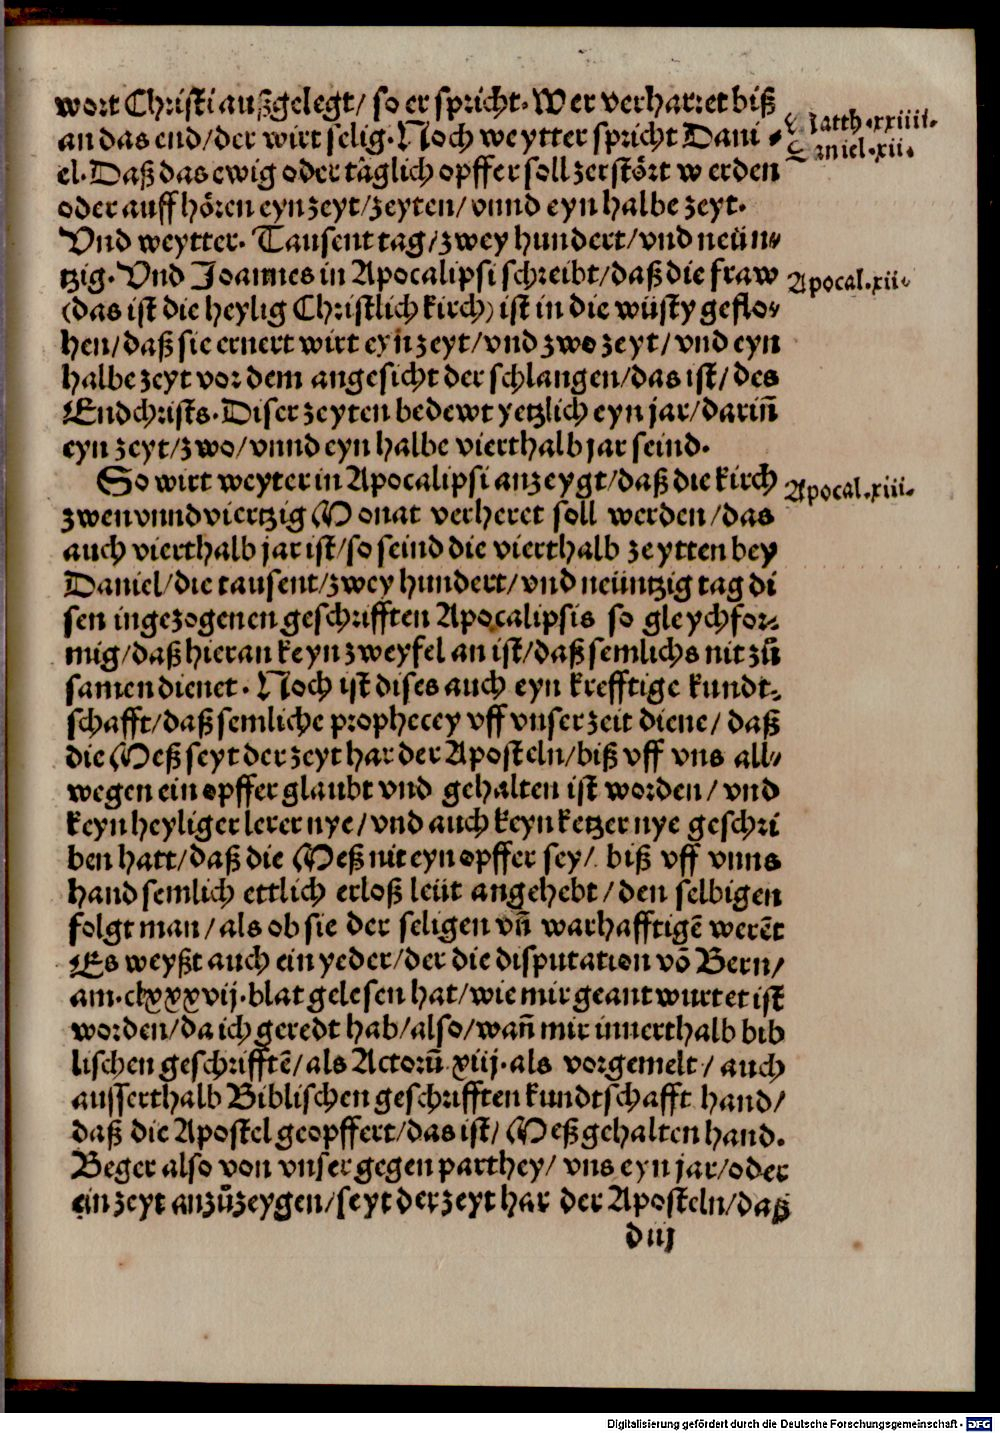 wort Christi außgelegt/ so er spricht. Wer verharret biß
an das end/der wirt selig. Noch weytter spricht Dani⸗
Matth.xxiiii.
Daniel.xii.
el. Daß das ewig oder täglich opffer soll zerstört werden
oder auff hören eyn zeyt/zeyten/ vnnd eyn halbe zeyt.
Vnd weytter. Tausent tag/zwey hundert/vnd neün⸗
tzig. Vnd Joannes in Apocalipsi schreibt/daß die fraw
Apocal.xii.
(das ist die heylig Christlich kirch) ist in die wüsty geflo⸗
hen/daß sie ernert wirt eyn zeyt/vnd zwo zeyt/vnd eyn
halbe zeyt vor dem angesicht der schlangen/das ist/ des
Endchrists. Diser zeyten bedewt yetzlich eyn jar/darin̄
eyn zeyt/zwo/vnnd eyn halbe vierthalb jar seind.
So wirt weyter in Apocalipsi anzeygt/daß die kirch
Apocal.xiii.
zwen vnnd viertzig Monat verheret soll werden/das
auch vierthalb jar ist/so seind die vierthalb zeytten bey
Daniel/die tausent/zwey hundert/vnd neüntzig tag di
sen ingezogenen geschrifften Apocalipsis so gleychfor⸗
mig/daß hieran keyn zweyfel an ist/daß semlichs nit zů
samen dienet. Noch ist dises auch eyn krefftige kundt⸗
schafft/daß semliche prophecey vff vnser zeit diene/ daß
die Meß seyt der zeyt har der Aposteln/biß vff vns all⸗
wegen ein opffer glaubt vnd gehalten ist worden/ vnd
keyn heyliger lerer nye/vnd auch keyn ketzer nye geschri
ben hatt/daß die Meß nit eyn opffer sey/ biß vff vnns
hand semlich ettlich erloß leüt angehebt/den selbigen
folgt man/als ob sie der seligen vn̄ warhafftigē werēt
Es weyßt auch ein yeder/der die disputation vō Bern/
am.clxxxvij.blat gelesen hat/wie mir geantwurtet ist
worden/da ich geredt hab/also/wan̄ mir innerthalb bib
lischen geschrifftē/als Actorū.xiij.als vorgemelt/ auch
ausserthalb Biblischen geschrifften kundtschafft hand/
daß die Apostel geopffert/das ist/ Meß gehalten hand.
Beger also von vnser gegenparthey/ vns eyn jar/oder
ein zeyt anzůzeygen/seyt der zeyt har der Aposteln/daß
d iij
Digitalisierung gefördert durch die Deutsche Forschungsgemeinschaft - DFG